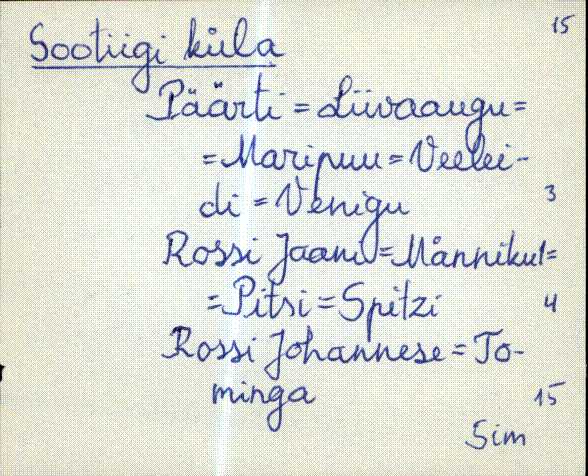 15
Sootiigi küla
Päärti = Liivaaugu =
= Maripuu = Veelei-
di = Venigu 3
Rossi Jaani = Männiku 1 =
= Pitsi = Spitzi 4
Rossi Johannese = To-
minga 15
Sim